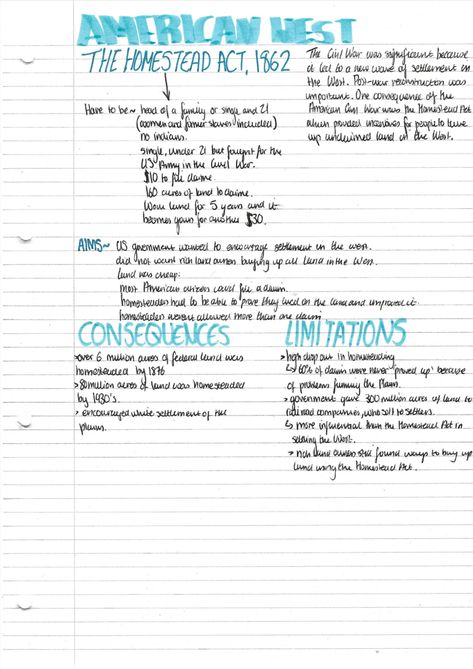 AMERICAN WEST
THE HOMESTEAD ACT, 1862
The Civil War was significant because
it led to a new wave of settlement in
the West. Post-war reconstruction was
important. One consequence of the
American Civil War was the Homestead Act
which provided incentives for people to take
up unclaimed land in the West.
Have to be ~ head of a family or single and 21
(women and former slaves included)
no indians.
single, under 21 but fought for the
US Army in the Civil War.
$10 to file claim.
160 acres of land to claim.
Work land for 5 years and it
becomes yours for another $30.
AIMS ~ US government wanted to encourage settlement in the west.
did not want rich land owners buying up all land in the West.
land was cheap.
most American citizens could file a claim.
homesteaders had to be able to prove they lived on the land and improved it.
homesteaders weren't allowed more than one claim.
CONSEQUENCES
> over 6 million acres of federal land was
homesteaded by 1876
> 80 million acres of land was homesteaded
by 1930's.
> encouraged white settlement of the
plains.
LIMITATIONS
> high drop out in homesteading
↳ 60% of claims were never 'proved up' because
of problems farming the Plains.
> government gave 300 million acres of land to
railroad companies who sold to settlers.
↳ more influential than the Homestead Act in
settling the West.
> rich land owners still found ways to buy up
land using the Homestead Act.